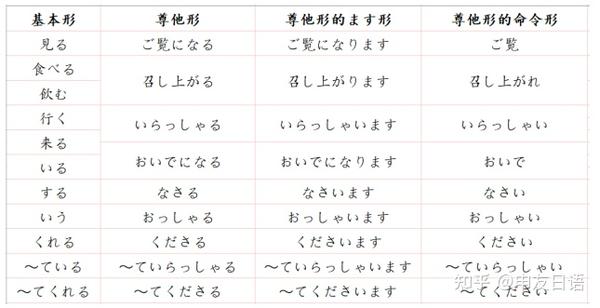 基本形 尊他形 尊他形的ます形 尊他形的命令形
見る ご覧になる ご覧になります ご覧
食べる
召し上がる 召し上がります 召し上がれ
飲む
行く
いらっしゃる いらっしゃいます いらっしゃい
来る
おいでになる おいでになります おいで
いる
する なさる なさいます なさい
いう おっしゃる おっしゃいます おっしゃい
くれる くださる くださいます ください
～ている ～ていらっしゃる ～ていらっしゃいます ～ていらっしゃい
～てくれる ～てくださる ～てくださいます ～てください
知乎 @申友日语